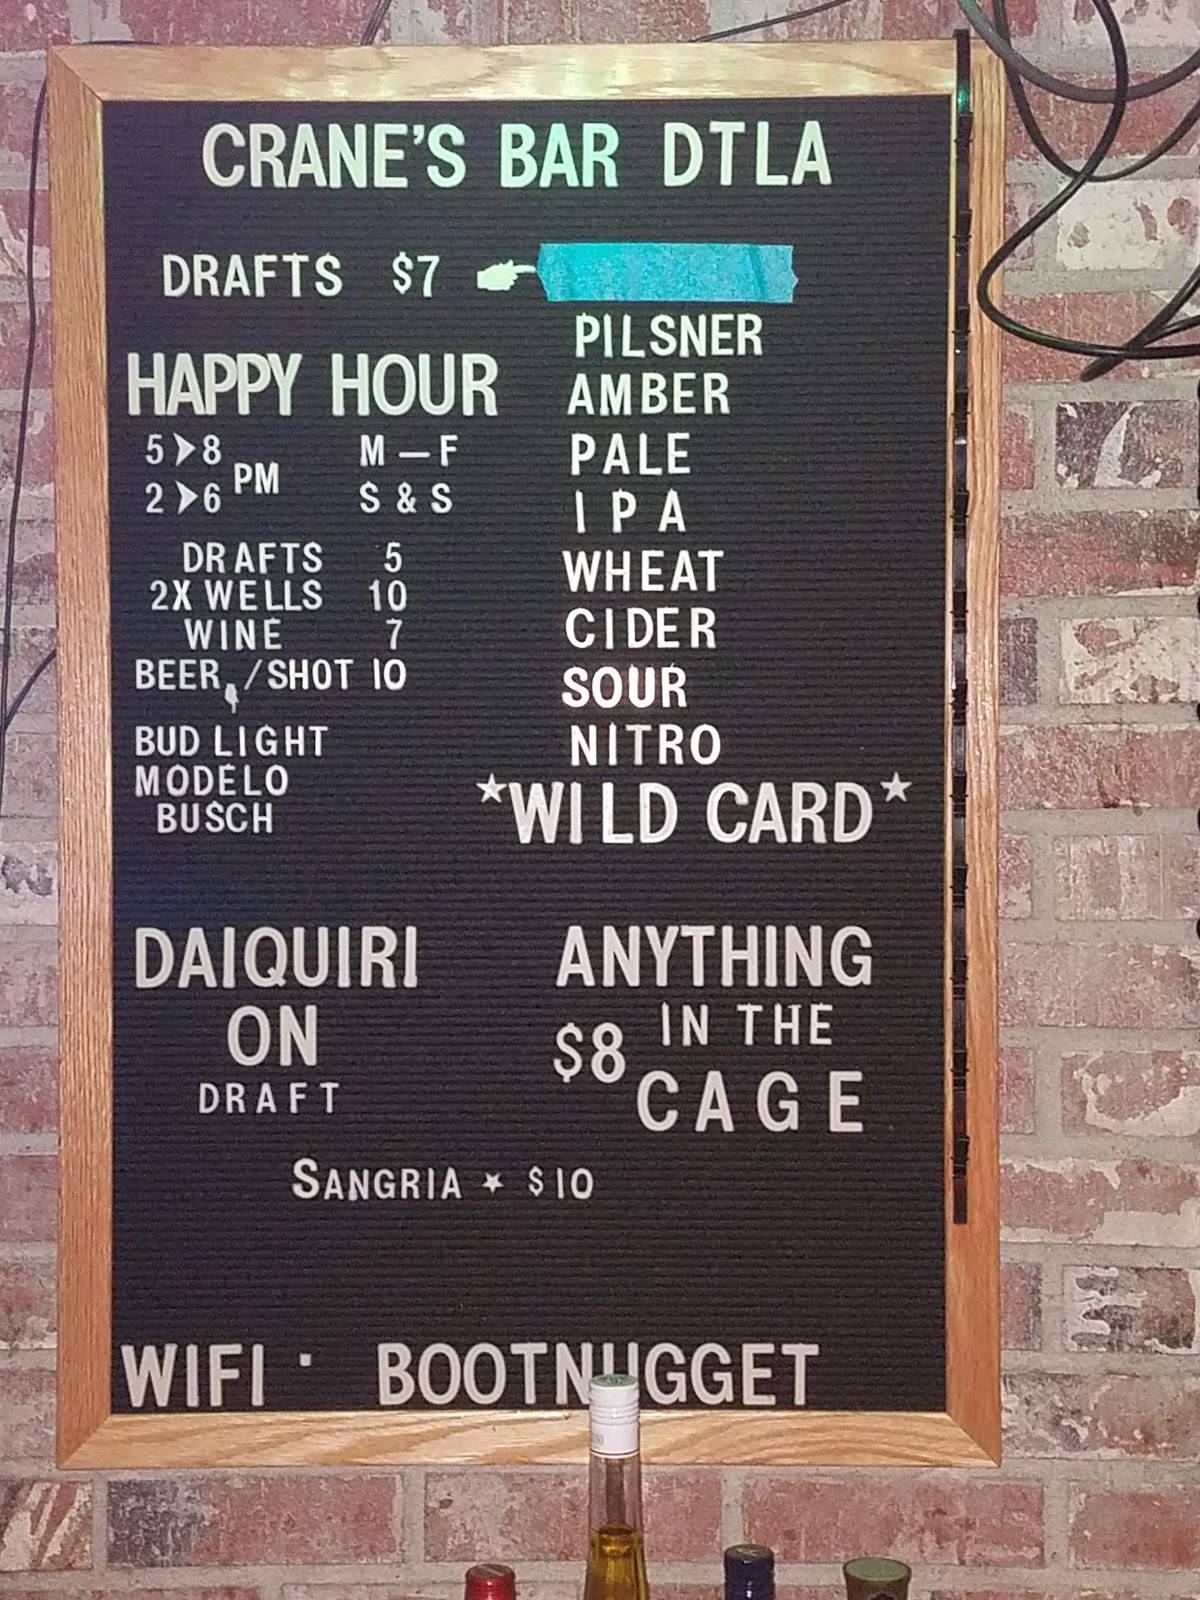 CRANE'S BAR DTLA
DRAFTS $7
PILSNER
AMBER
PALE
IPA
WHEAT
CIDER
SOUR
NITRO
*WILD CARD*
HAPPY HOUR
5>8 PM M-F
2>6 S&S
DRAFTS 5
2X WELLS 10
WINE 7
BEER/SHOT 10
BUD LIGHT
MODELO
BUSCH
DAIQUIRI
ON
DRAFT
ANYTHING
$8 IN THE
CAGE
SANGRIA * $10
WIFI · BOOTNUGGET